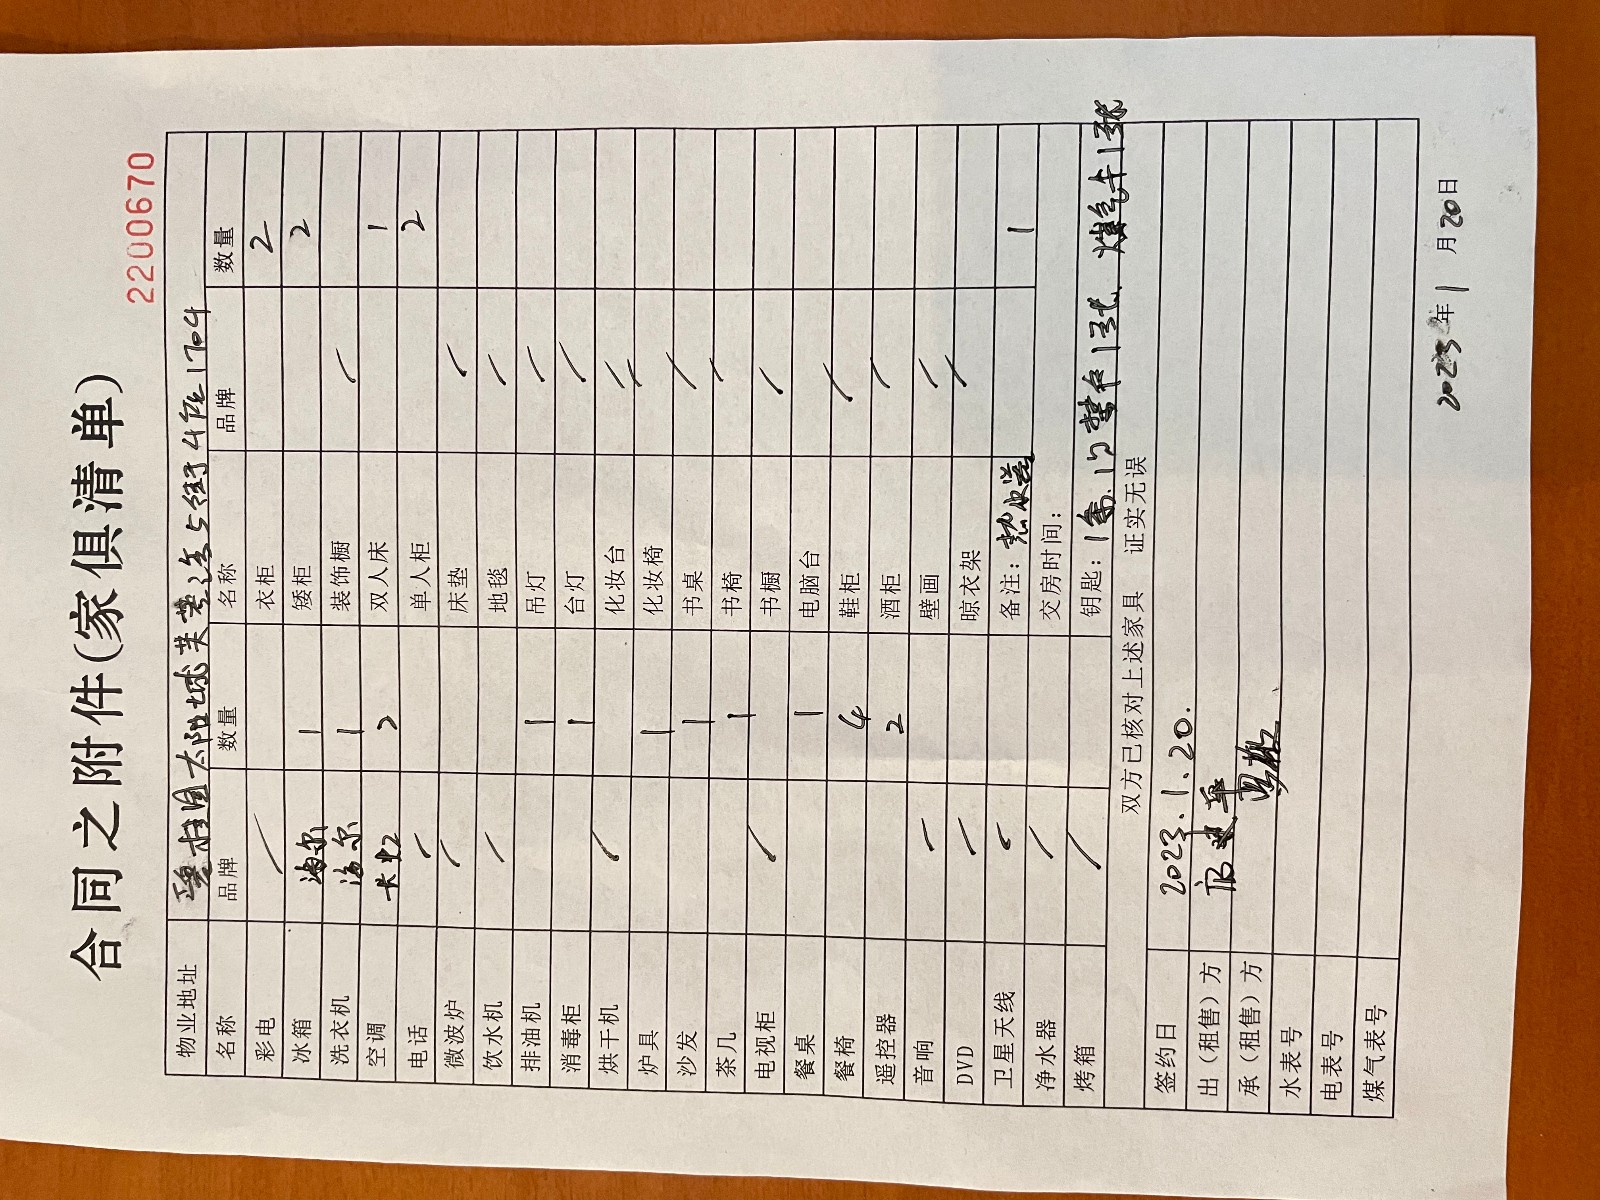 2200670
合同之附件(家俱清单)
物业地址 碧桂园太阳城芙蓉洁5街4座1704
名称 品牌 数量 名称 品牌 数量
彩电 / 衣柜 2
冰箱 海尔 1 矮柜 2
洗衣机 海尔 1 装饰橱 /
空调 长虹 2 双人床 1
电话 / 单人柜 2
微波炉 / 床垫 /
饮水机 / 地毯 /
排油机 1 吊灯 /
消毒柜 1 台灯 /
烘干机 / 化妆台 /
炉具 1 化妆椅 /
沙发 1 书桌 /
茶几 1 书椅 /
电视柜 / 书橱 /
餐桌 1 电脑台
餐椅 4 鞋柜 /
遥控器 2 酒柜 /
音响 / 壁画 /
DVD / 晾衣架 /
卫星天线 / 备注: 热水器 1
净水器 / 交房时间:
烤箱 / 钥匙: 1条.门禁卡1张、煤气卡1张
双方已核对上述家具 证实无误
签约日 2023.1.20.
出(租售)方
承(租售)方
水表号
电表号
煤气表号
2023年1月20日